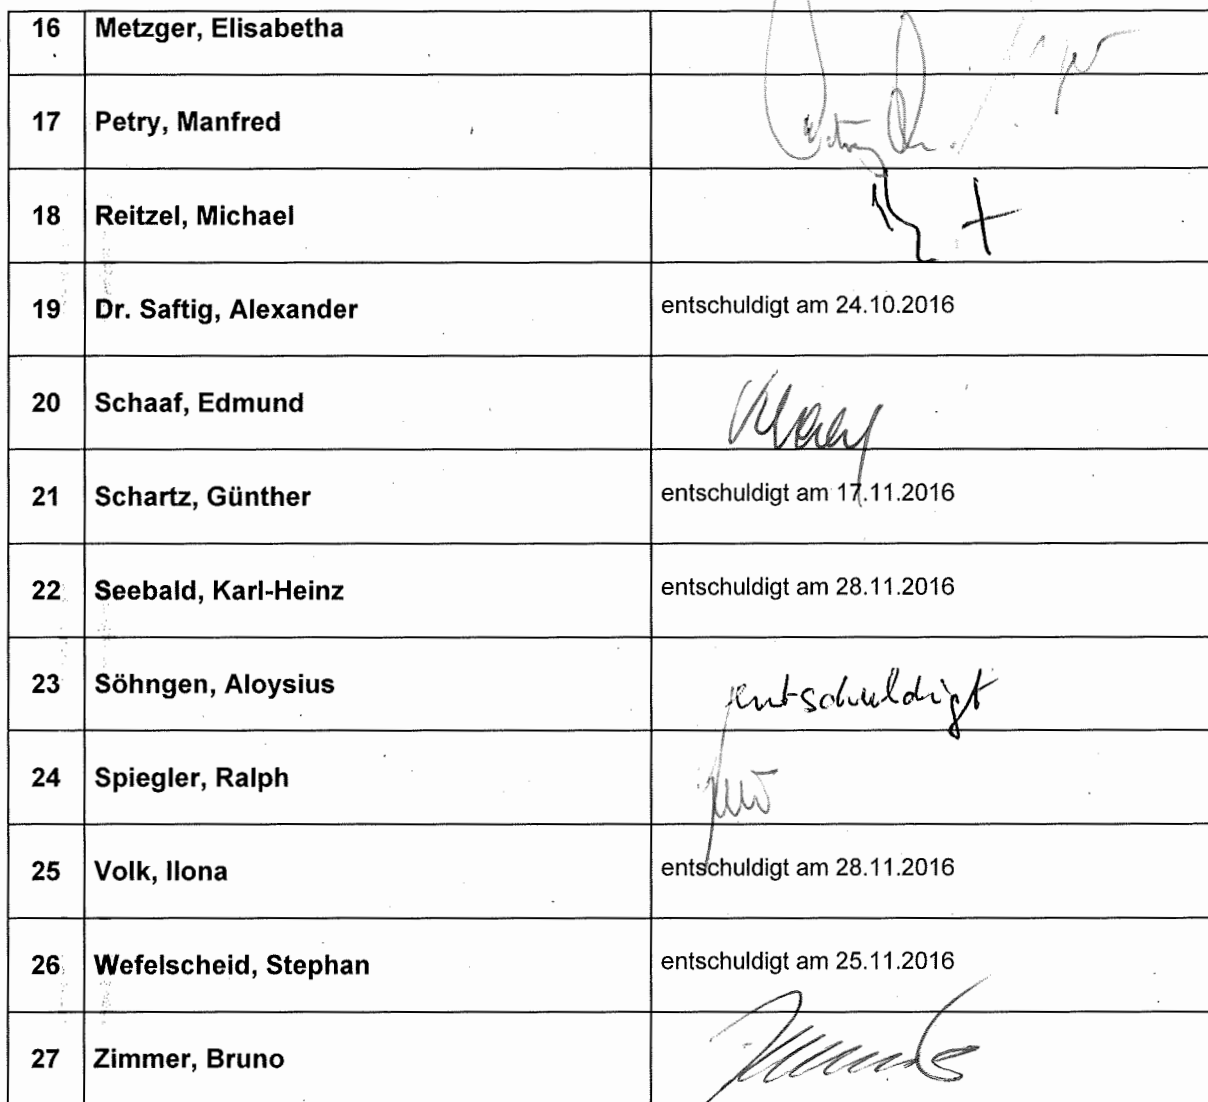 16 Metzger, Elisabetha
17 Petry, Manfred
18 Reitzel, Michael
19 Dr. Saftig, Alexander entschuldigt am 24.10.2016
20 Schaaf, Edmund
21 Schartz, Günther entschuldigt am 17.11.2016
22 Seebald, Karl-Heinz entschuldigt am 28.11.2016
23 Söhngen, Aloysius entschuldigt
24 Spiegler, Ralph
25 Volk, Ilona entschuldigt am 28.11.2016
26 Wefelscheid, Stephan entschuldigt am 25.11.2016
27 Zimmer, Bruno